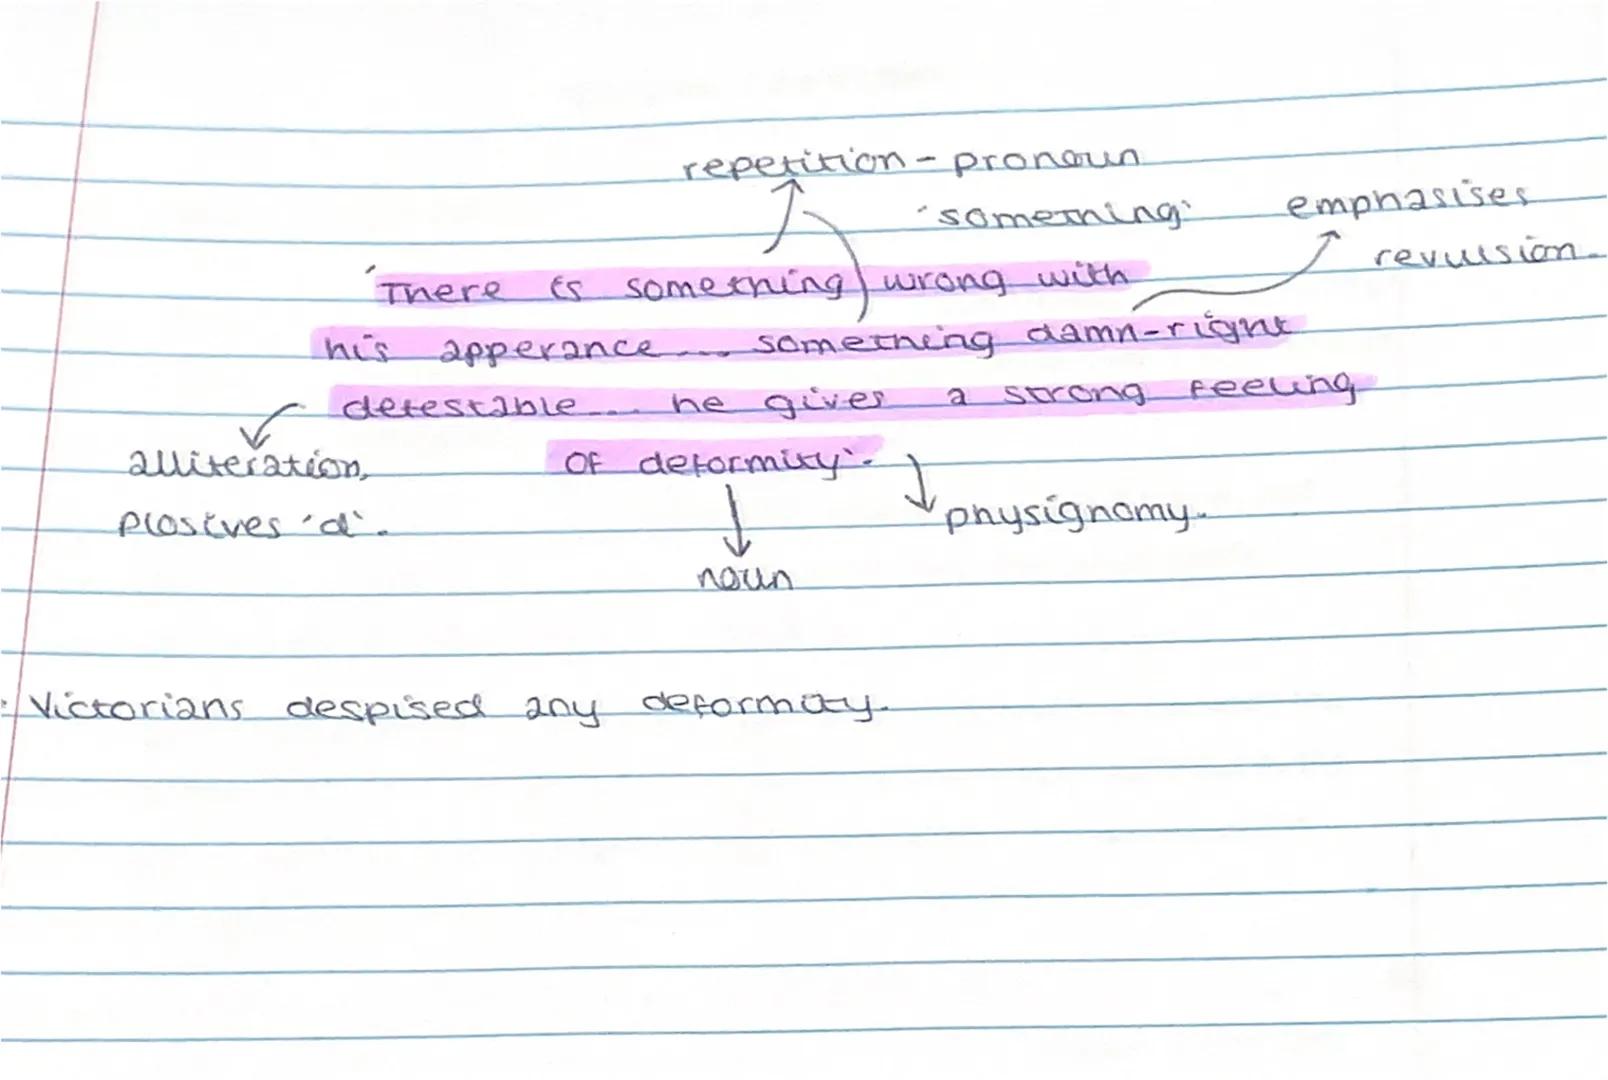 repetition - pronoun
'something'
emphasises
revulsion.
'There is something wrong with
his apperance... something damn-right
detestable... he gives a strong feeling
of deformity'.
alliteration,
plosives 'd'.
physignomy.
noun
Victorians despised any deformity.